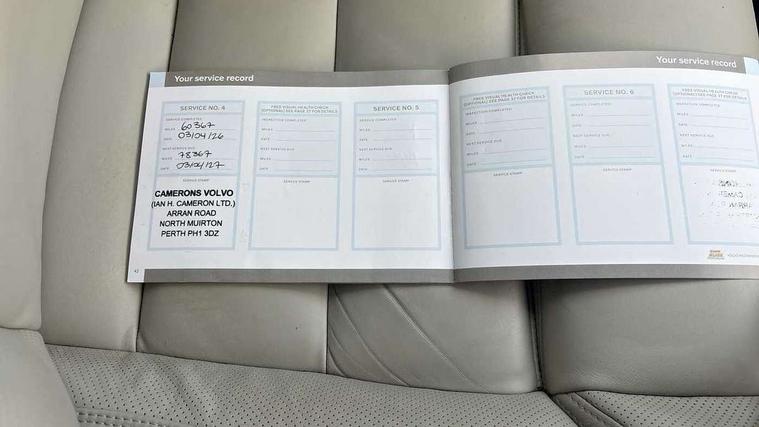 Your service record
SERVICE NO. 4
SERVICE COMPLETED
MILES 60 367
DATE 03/04/26
NEXT SERVICE DUE
MILES 78367
DATE 03/04/27
SERVICE STAMP
CAMERONS VOLVO
(IAN H. CAMERON LTD.)
ARRAN ROAD
NORTH MUIRTON
PERTH PH1 3DZ
42
FREE VISUAL HEALTH CHECK
(OPTIONAL) SEE PAGE 37 FOR DETAILS
INSPECTION COMPLETED
MILES
DATE
NEXT SERVICE DUE
MILES
DATE
SERVICE STAMP
SERVICE NO. 5
SERVICE COMPLETED
MILES
DATE
NEXT SERVICE DUE
MILES
DATE
SERVICE STAMP
Your service record
FREE VISUAL HEALTH CHECK
(OPTIONAL) SEE PAGE 37 FOR DETAILS
INSPECTION COMPLETED
MILES
DATE
NEXT SERVICE DUE
MILES
DATE
SERVICE STAMP
SERVICE NO. 6
SERVICE COMPLETED
MILES
DATE
NEXT SERVICE DUE
MILES
DATE
SERVICE STAMP
FREE VISUAL HEALTH CHECK
(OPTIONAL) SEE PAGE 37 FOR DETAILS
INSPECTION COMPLETED
MILES
DATE
NEXT SERVICE DUE
MILES
DATE
SERVICE STAMP